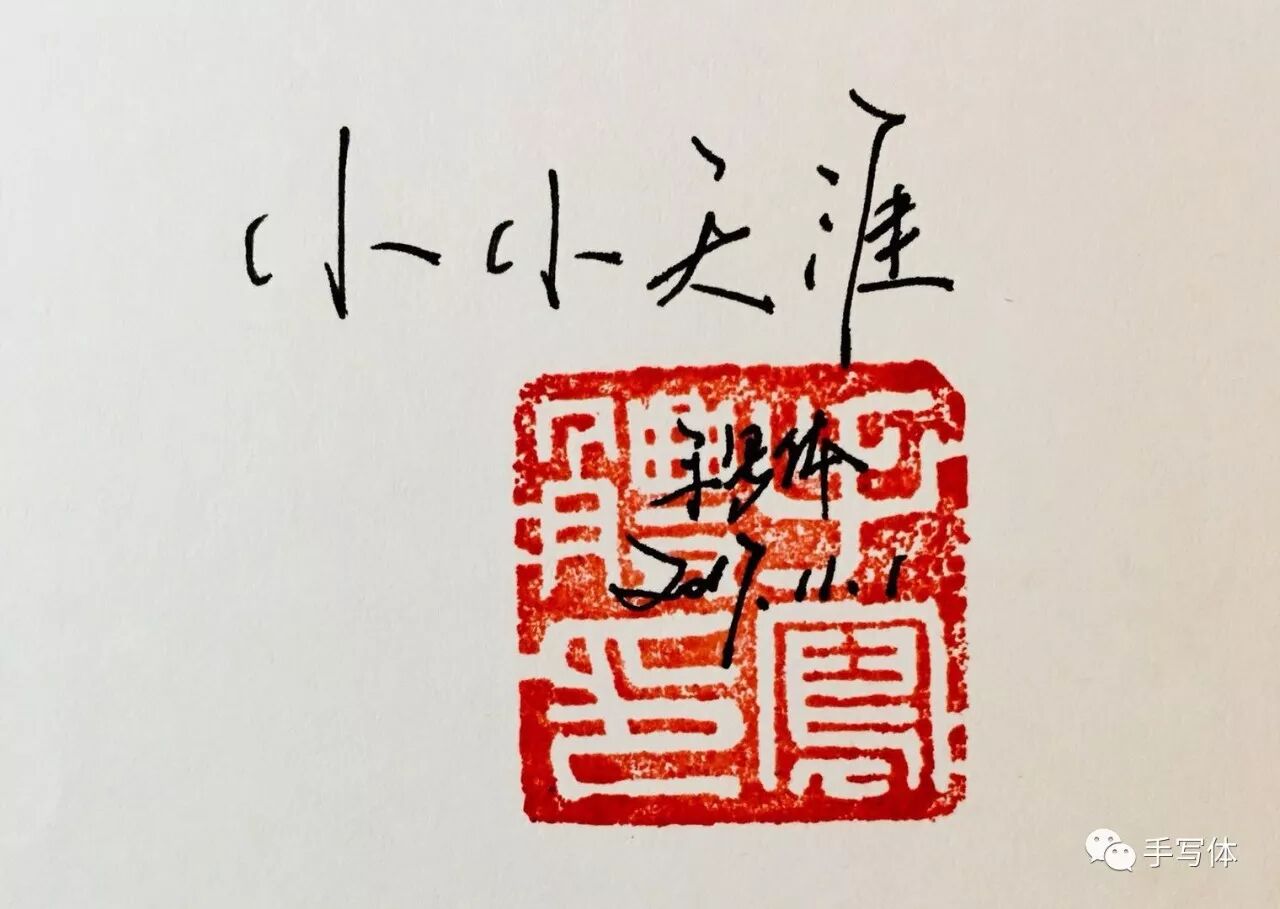 小小天涯
手写体
2017.11.1
手寫體印
手写体